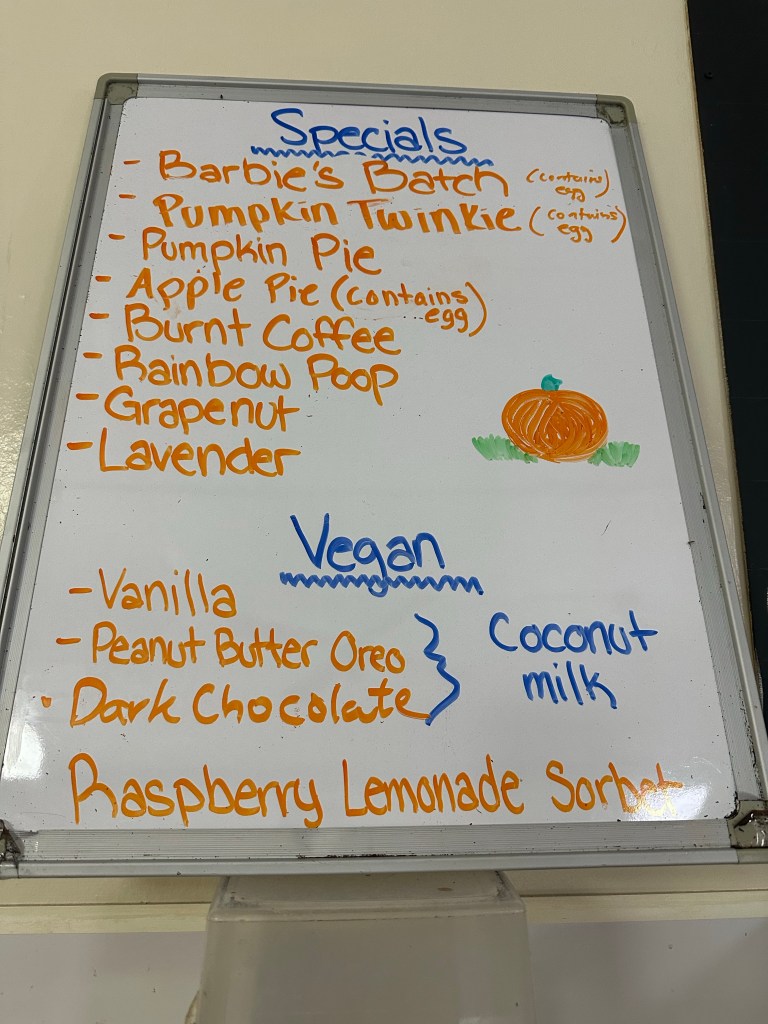 Specials
- Barbie's Batch (contains egg)
- Pumpkin Twinkie (contains egg)
- Pumpkin Pie
- Apple Pie (contains egg)
- Burnt Coffee
- Rainbow Poop
- Grapenut
- Lavender
Vegan
- Vanilla
- Peanut Butter Oreo
· Dark Chocolate
Coconut
milk
Raspberry Lemonade Sorbet